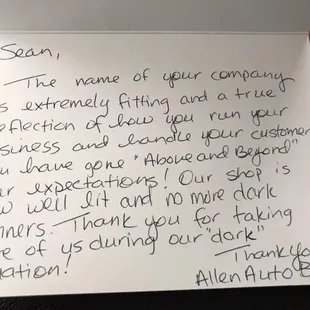 Sean,
The name of your company
s extremely fitting and a true
eflection of how you run your
siness and handle your customer
u have gone "Above and Beyond"
r expectations! Our shop is
w well lit and no more dark
ners. Thank you for taking
e of us during our "dark"
uation!
Thank yo
Allen Auto B